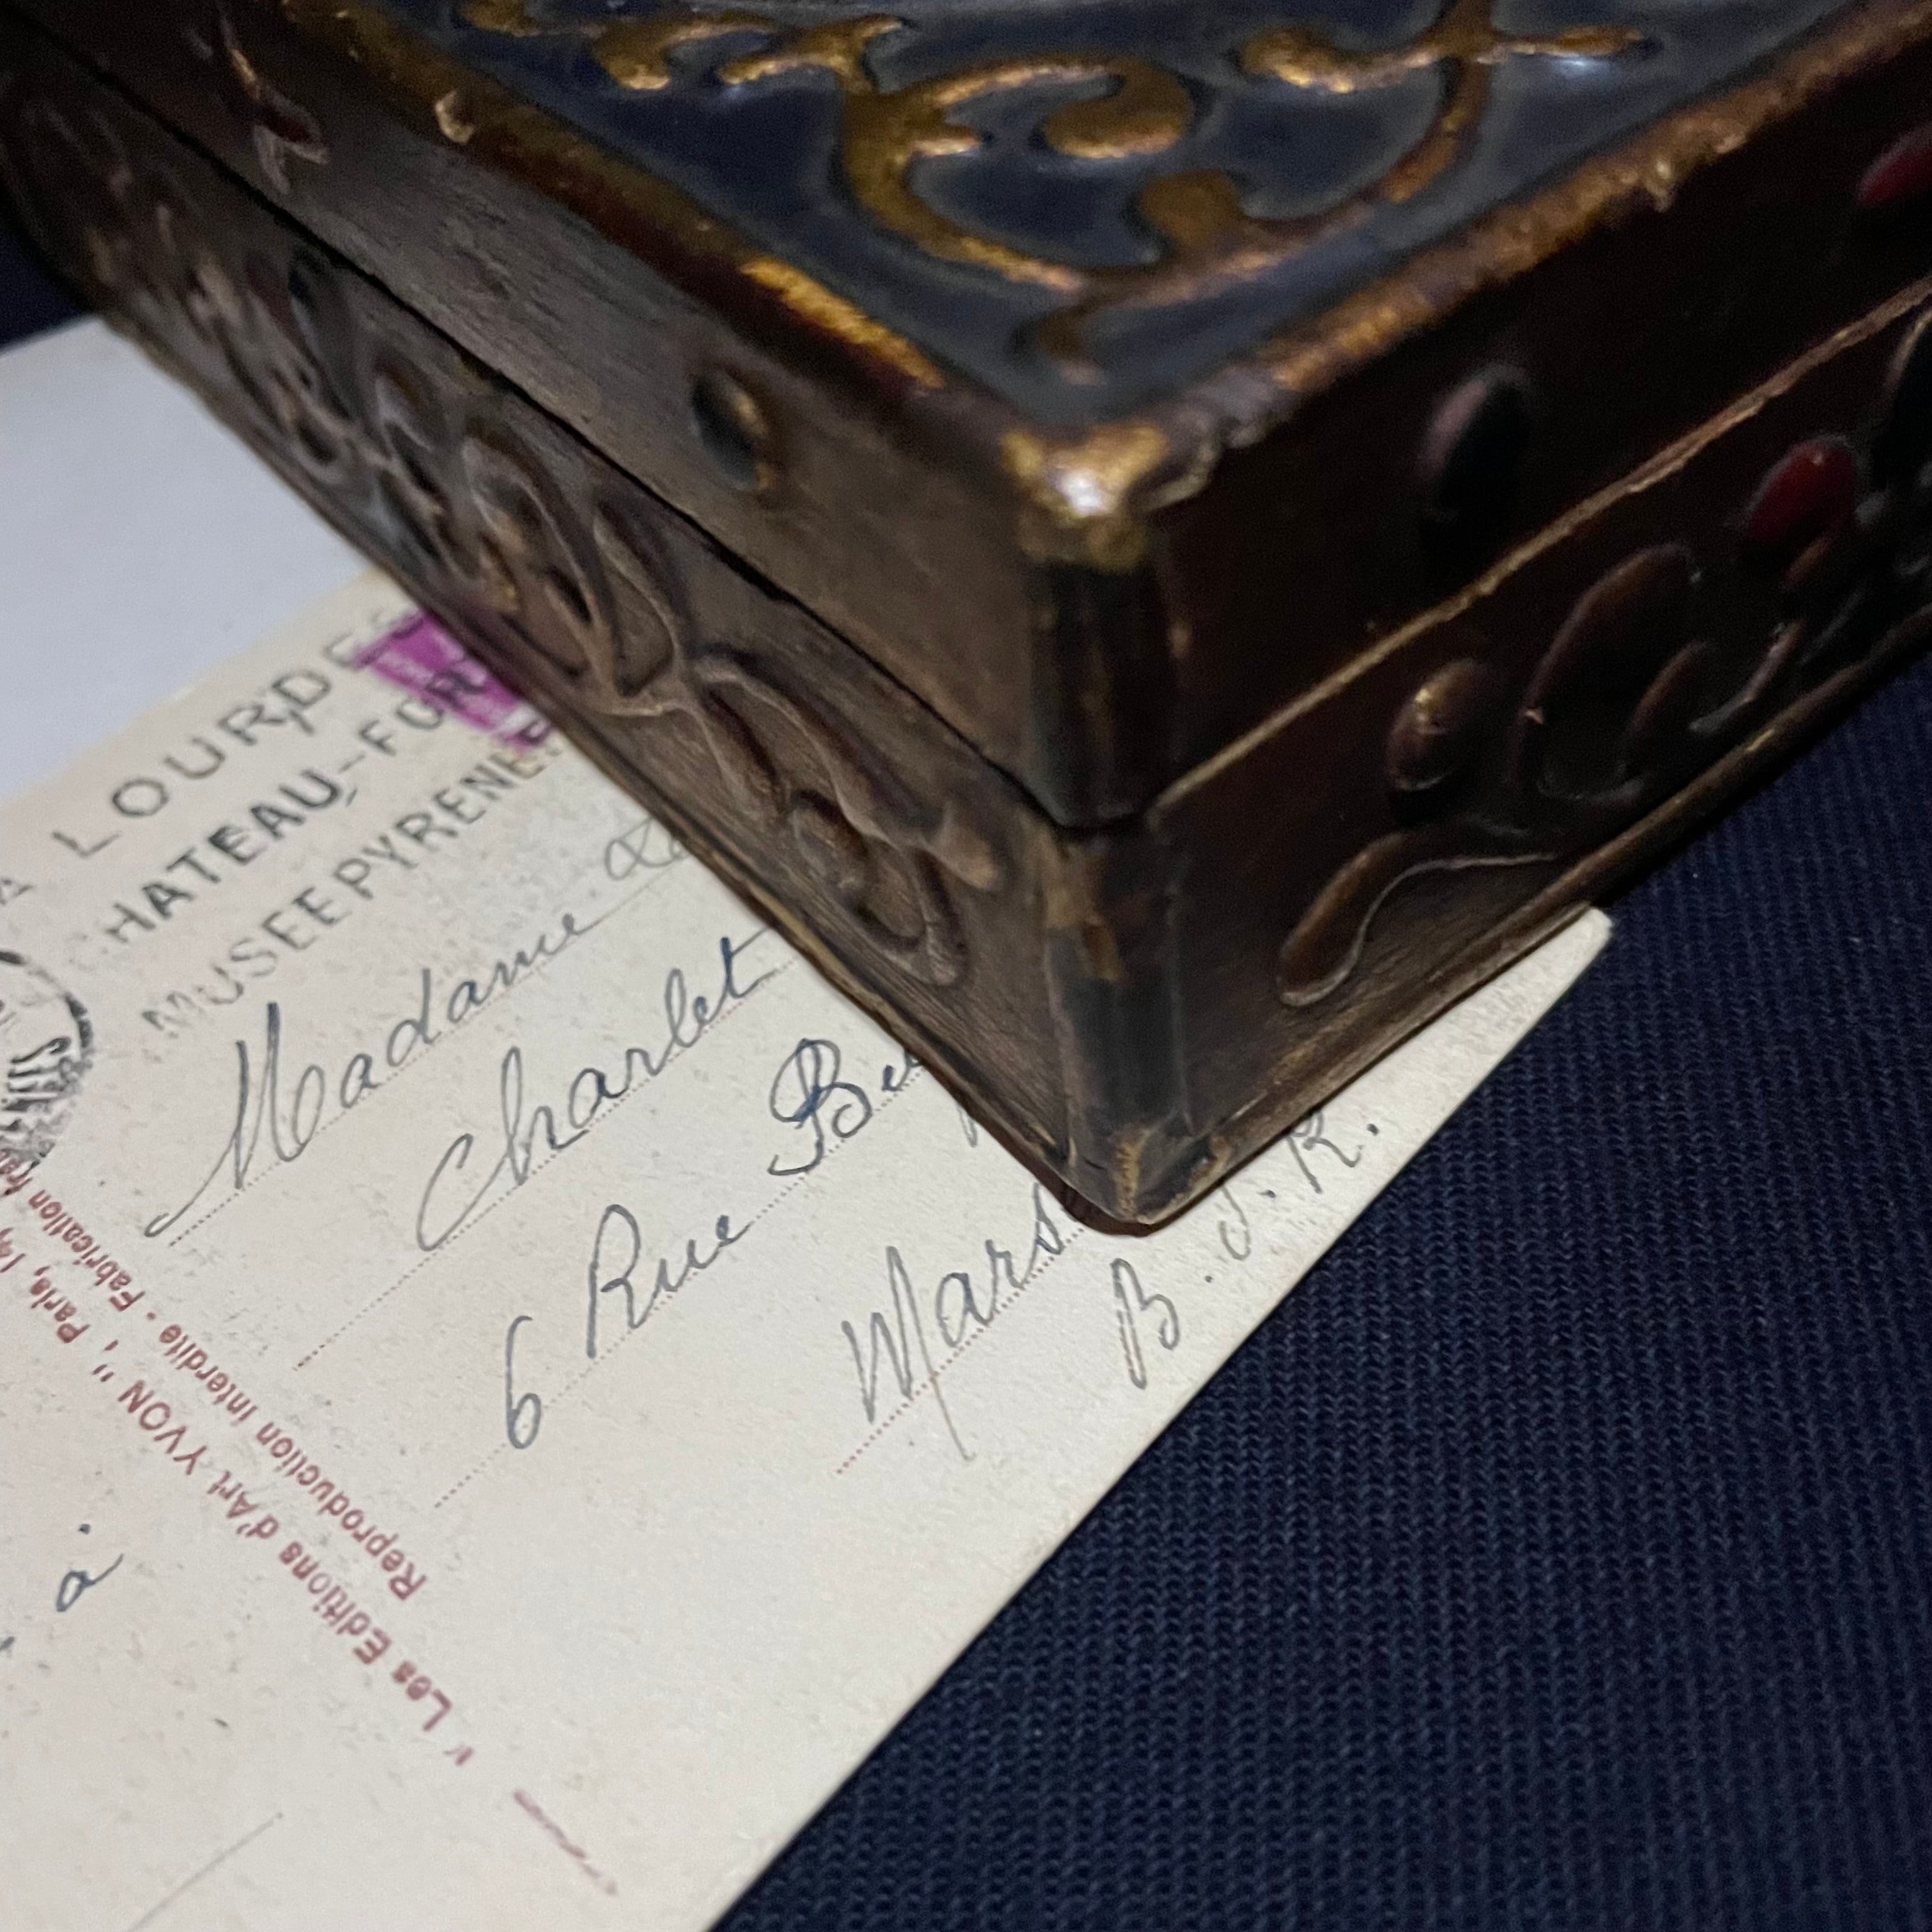 LOURDES
CHATEAU-FOR
MUSEE PYRENE
Madame
Charlet
6 Rue
Mars
B. J. R.
à
" Les Editions d'Art YVON ", Paris,
Reproduction interdite - Fabrication